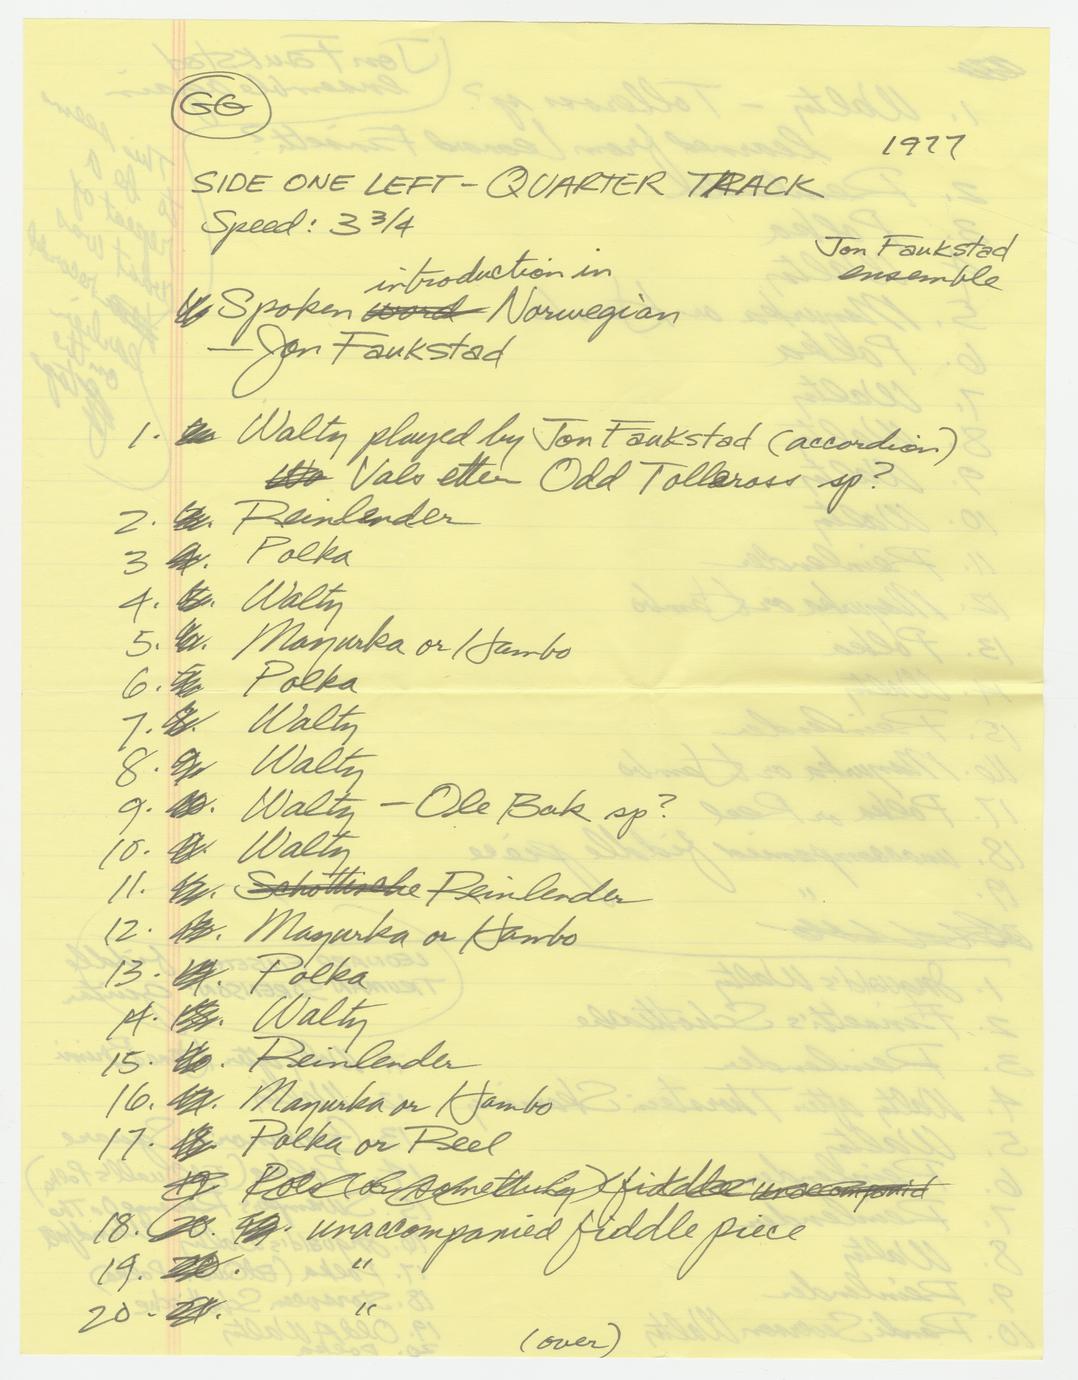 GG
1977
SIDE ONE LEFT - QUARTER TRACK
Speed: 3 3/4
Jon Faukstad
ensemble
introduction in
Spoken word Norwegian
— Jon Faukstad
1. Waltz played by Jon Faukstad (accordion)
Vals etter Odd Tolleross sp?
2. Reinlender
3 Polka
4. Waltz
5. Mazurka or Hambo
6. Polka
7. Waltz
8. Waltz
9. Waltz — Ole Bak sp?
10. Waltz
11. Schottische Reinlender
12. Mazurka or Hambo
13. Polka
14. Waltz
15. Reinlender
16. Mazurka or Hambo
17. Polka or Reel
19. Pols (or something) (fiddle unaccompanied
18. 20. 19. unaccompanied fiddle piece
19. 20. "
20. 21. "
(over)